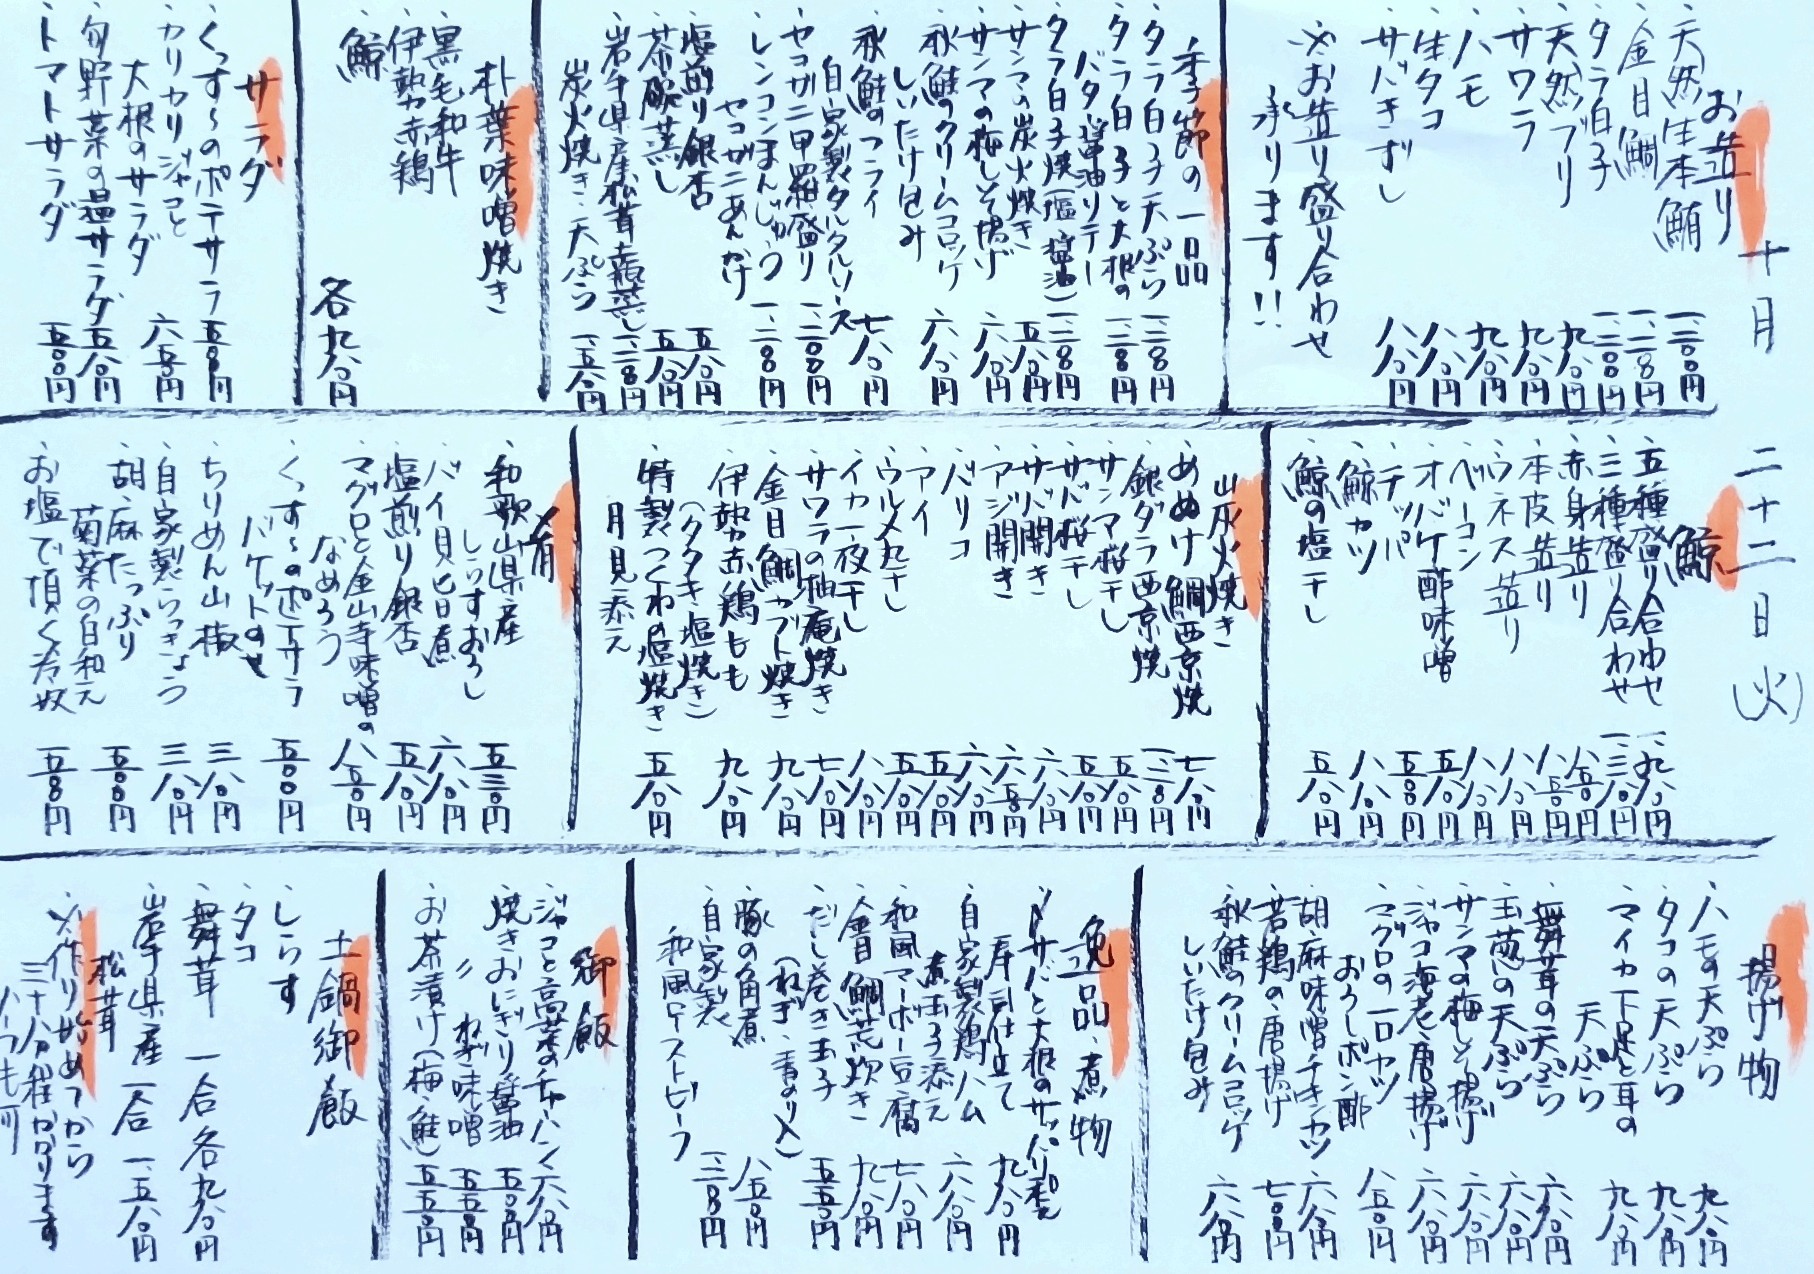 十月 二十二日(火)
お造り
・天然生本鮪 一、三〇〇円
・金目鯛 一、二八〇円
・タラ白子 一、二〇〇円
・天然ブリ 九八〇円
・サワラ 九八〇円
・ハモ 九八〇円
・生タコ 八八〇円
・サバきずし 八八〇円
※お造り盛り合わせ
承ります!!
季節の一品
・タラ白子天ぷら 一、二八〇円
・タラ白子と大根の
バター醤油ソテー 一、二八〇円
・タラ白子焼(塩・醤油) 一、二八〇円
・サンマの炭火焼き 五八〇円
・サンマの梅しそ揚げ 六八〇円
・秋鮭のクリームコロッケ
しいたけ包み 六八〇円
・秋鮭のフライ
自家製タルタルソース 七八〇円
・セコガニ甲羅盛り 一、二〇〇円
・レンコンまんじゅう
セコガニあんかけ 一、二八〇円
・塩煎り銀杏 五八〇円
・茶碗蒸し 五八〇円
・岩手県産松茸土瓶蒸し 一、二八〇円
炭火焼き・天ぷら 一、五八〇円
朴葉味噌焼き
・黒毛和牛
・伊勢赤鶏
・鯨
各九八〇円
サラダ
・くっすーのポテサラ 五〇〇円
・カリカリジャコと
大根のサラダ 六五〇円
・旬野菜の温サラダ 五八〇円
・トマトサラダ 五〇〇円
鯨
・五種盛り合わせ 一、九八〇円
・三種盛り合わせ 一、三八〇円
・赤身造り 八五〇円
・本皮造り 八五〇円
・ウネス造り 八八〇円
・ベーコン 八八〇円
・オバケ酢味噌 五八〇円
・テッパ 五〇〇円
・鯨カツ 八八〇円
・鯨の塩干し 五八〇円
炭火焼き
・めぬけ鯛西京焼 七八〇円
・銀ダラ西京焼 一、二八〇円
・サンマ桜干し 五八〇円
・サバ桜干し 五八〇円
・サバ開き 六八〇円
・アジ開き 六五〇円
・バリコ 六八〇円
・アイ 五八〇円
・ウルメ丸干し 五八〇円
・イカ一夜干し 八八〇円
・サワラの柚庵焼き 七八〇円
・金目鯛カブト焼き 九八〇円
・伊勢赤鶏もも
(タタキ・塩焼き) 九八〇円
・特製つくねの塩焼き
月見添え 五八〇円
肴
・和歌山県産
しらすおろし 五三〇円
・バイ貝旨煮 六八〇円
・塩煎り銀杏 五八〇円
・マグロと金山寺味噌の
なめろう 八五〇円
・くっすーのポテサラ
バケットのせ 五〇〇円
・ちりめん山椒 三八〇円
・自家製らっきょう 三八〇円
・胡麻たっぷり
菊菜の白和え 五〇〇円
・お塩で頂く冷奴 五〇〇円
揚げ物
・ハモの天ぷら 九八〇円
・タコの天ぷら 九八〇円
・マイカ下足と耳の
天ぷら 九八〇円
・舞茸の天ぷら 六八〇円
・玉葱の天ぷら 六八〇円
・サンマの梅しそ揚げ 六八〇円
・ジャコ海老唐揚げ 六八〇円
・マグロの一口カツ
おろしポン酢 八五〇円
・胡麻味噌チキンカツ 六八〇円
・若鶏の唐揚げ 七〇〇円
・秋鮭のクリームコロッケ
しいたけ包み 六八〇円
逸品・煮物
・〆サバと大根のサッパリ和え
寿司仕立て 九八〇円
・自家製鶏ハム
煮玉子添え 六八〇円
・和風マーボー豆腐 七八〇円
・金目鯛荒炊き 九八〇円
・だし巻き玉子
(ねぎ・青のり入) 五五〇円
・豚の角煮 八五〇円
・自家製
和風ローストビーフ 一、二八〇円
御飯
・ジャコと高菜のチャーハン 六八〇円
・焼きおにぎり醤油 五〇〇円
・〃 ねぎ味噌 五五〇円
・お茶漬け(梅・鮭) 五五〇円
土鍋御飯
・しらす
・タコ
・舞茸 一合 各九八〇円
・岩手県産
松茸 一合 一、五八〇円
※作り始めてから
三十分程かかります
ハーフも可